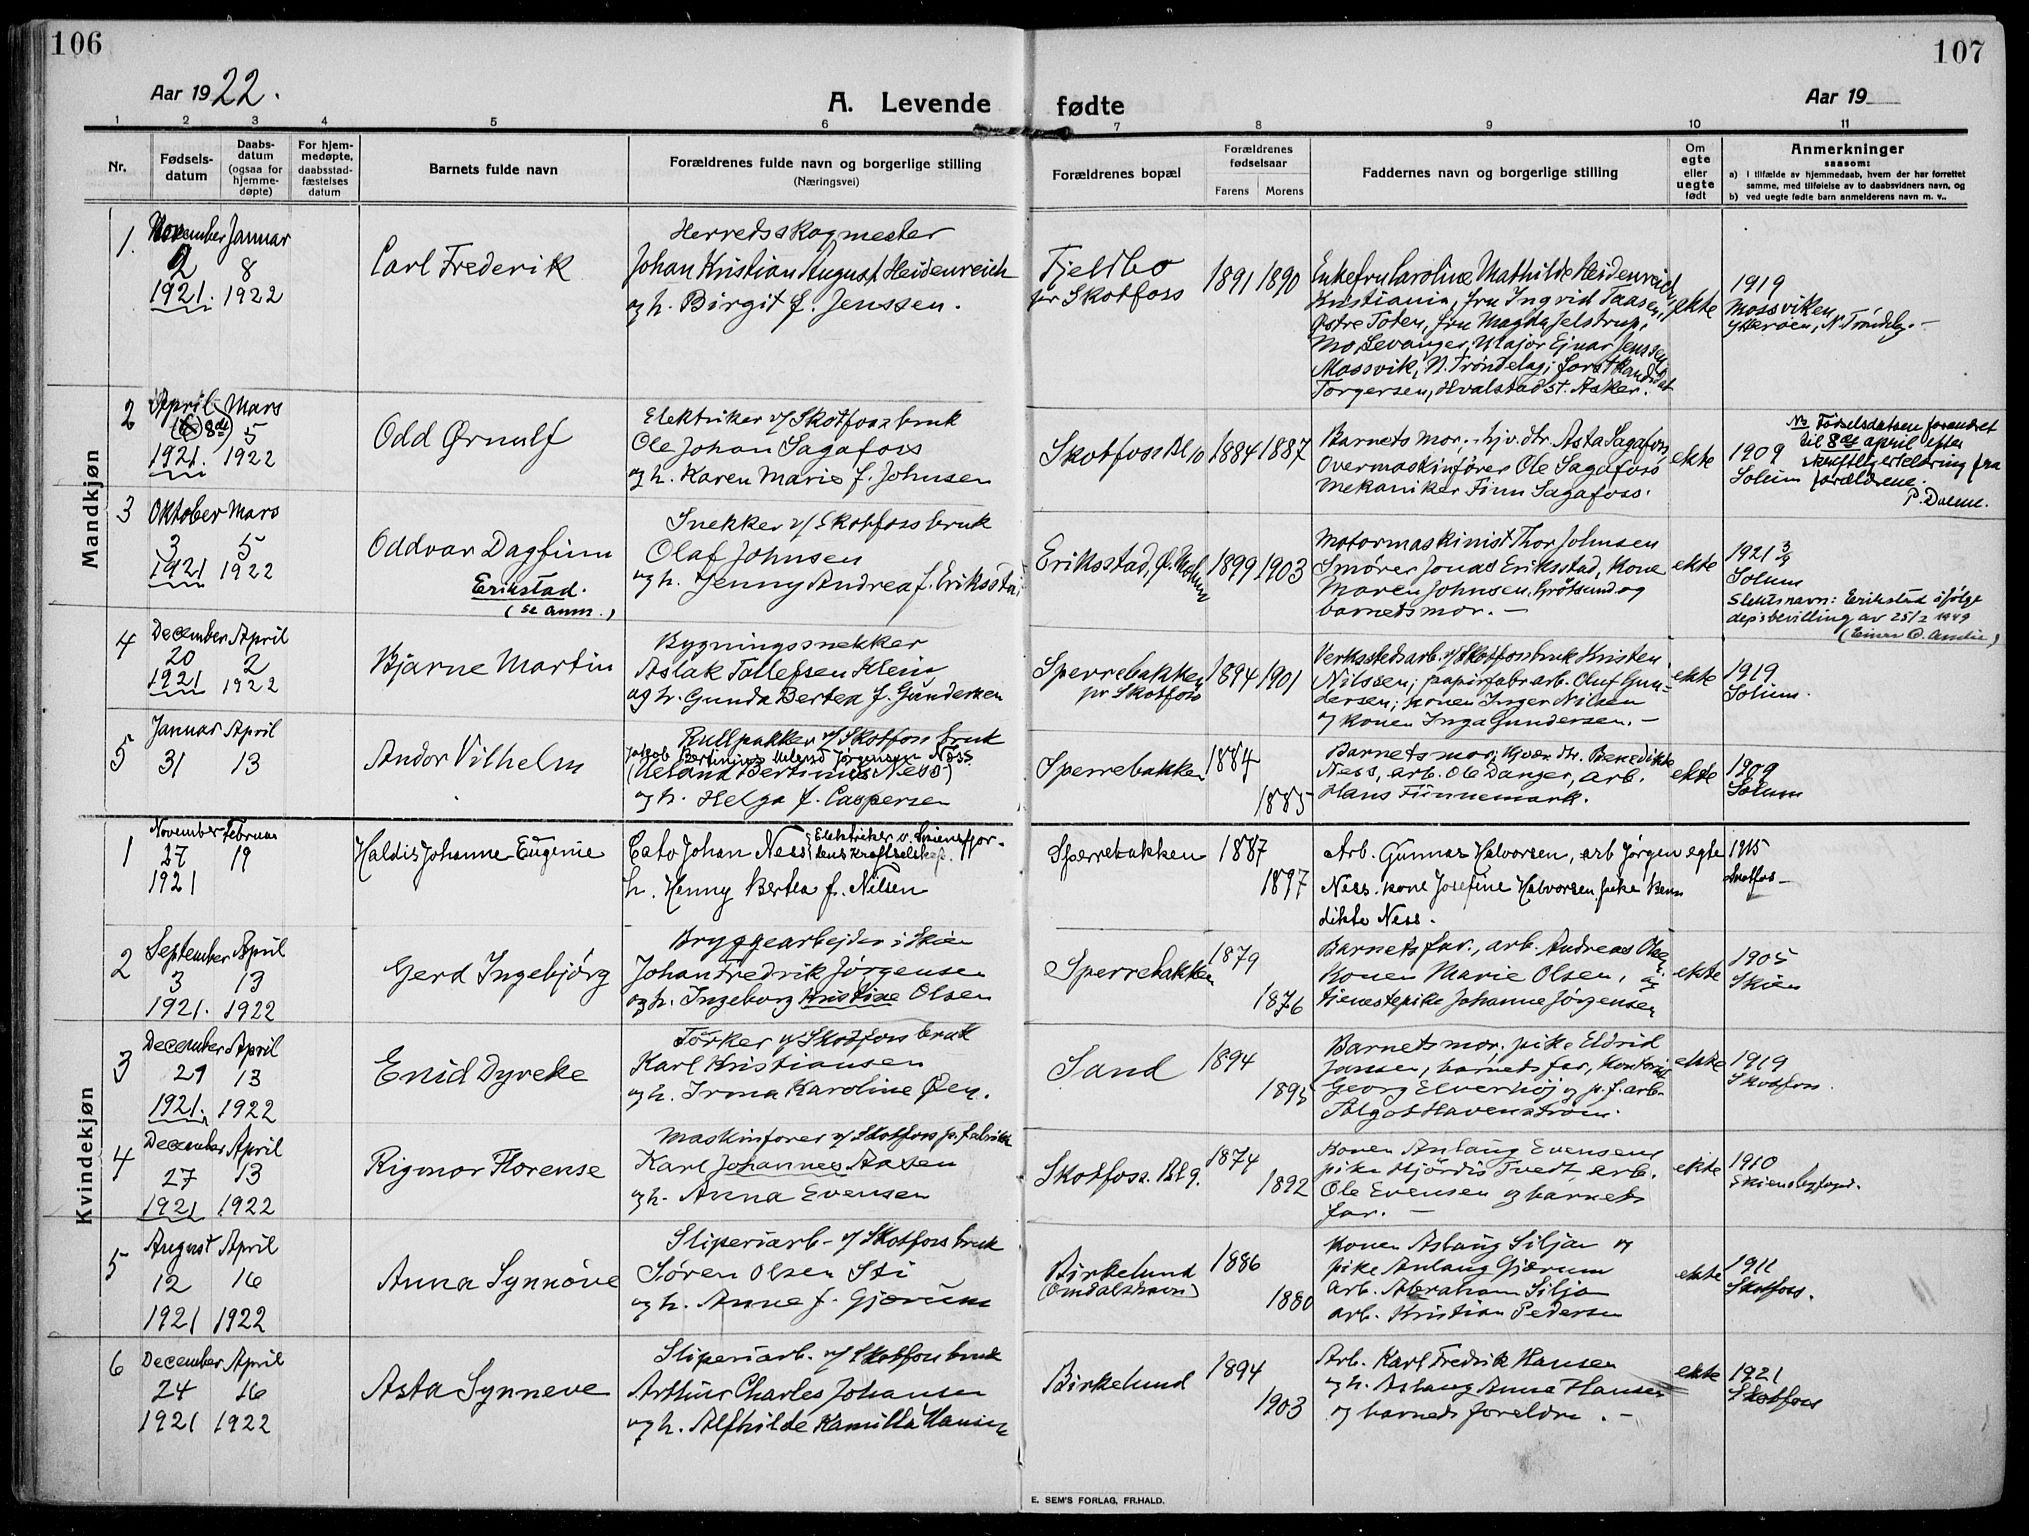 106
107
Aar 1922.
A. Levende fødte
Aar 19
1 2 3 4 5 6 7 8 9 10 11
Nr.
Fødsels-
datum
Daabs-
datum
(ogsaa for
hjemme-
døpte)
For hjem-
medøpte,
daabsstad-
fæstelses
datum
Barnets fulde navn
Forældrenes fulde navn og borgerlige stilling
(Næringsvei)
Forældrenes bopæl
Forældrenes
fødselsaar
Farens Morens
Faddernes navn og borgerlige stilling
Om
egte
eller
uegte
født
Anmerkninger
saasom:
a) I tilfælde av hjemmedaab, hvem der har forrettet
samme, med tilføielse av to daabsvidners navn, og
b) ved uegte fødte barn anmelderens navn m. v..
Mandkjøn
1. November Januar
2 8
1921. 1922
Carl Frederik
Herredsskogmester
Johan Kristian August Heidenreich
og h. Birgit f. Jenssen.
Fjeldbo
pr Skotfoss
1891 1890
Enkefru Caroline Mathilde Heidenreich,
Kristiania, fru Ingrid Taasen,
Østre Toten, fru Magda Jelstrup,
Mo, Levanger, Major Ejnar Jenssen
Mossvik, N. Trøndelag; forstkandidat
Torgersen, Hvalstad st. Asker.
ekte
1919
Mossviken,
Ytterøen, N. Trøndelag. -
2 April Mars
(6) 8de 5
1921. 1922
Odd Ørnulf
Elektriker v/ Skotfoss bruk
Ole Johan Sagafoss
og h. Karen Marie f. Johnsen
Skotfoss Bl 10
1884 1887
Barnets mor, hjv. dtr. Asta Sagafoss,
Overmaskinfører Ole Sagafoss
Mekaniker Finn Sagafoss.
ekte
1909
Solum
NB Fødselsdatoen forandret
til 8de april efter
skriftlig erklæring fra
forældrene.
3 Oktober Mars
3 5
1921 1922
Oddvar Dagfinn
Erikstad.
(se anm.)
Snekker v/ Skotfoss bruk
Olaf Johnsen
og h. Jenny Andrea f. Eriksstad
Eriksstad,
1899 1903
Motormaskinist Thor Johnsen
Smører Jonas Eriksstad, Kone
Maren Johnsen, og
barnets mor. -
ekte
1921
Solum
Slektsnavn: Erikstad ifølge
depsbevilling av 25/2 1949
4 December April
20 2
1921 1922
Bjarne Martin
Bygningssnekker
Aslak Tollefsen Klein
og h. Gunda Bertea f. Gundersen
Sperrebakken
pr Skotfoss
1894 1901
Verkstedsarb. v/ Skotfoss bruk Kristen
Nilssen; papirfabr arb. Oluf Gun-
dersen; konen Inger Nilsen
og konen Inga Gundersen. -
ekte
1919
Solum.
5 Januar April
31 13
Andor Vilhelm
Rullpakker v/ Skotfoss bruk
Jakob Bertinius Usland Jørgensen Næss
(Usland Bertinius Ness)
og h. Helga f. Caspersen
Sperrebakken
1884
1885
Barnets mor, hjv. dtr. Benedikte
Ness, arb. Ole Danger, arb.
Hans Finnemark.
ekte
1909
Solum
Kvindekjøn
1 November Februar
27 19
1921
Haldis Johanne Eugenie
Cato Johan Ness Elektriker v. Skiensfjor-
dens kraftselskap.
h. Henny Bertea f. Nilsen
Sperrebakken
1887
1897
Arb. Gunnar Halvorsen, arb Jørgen
Ness. kone Josefine Halvorsen. pike Bene
dikte Ness.
egte
1915
Skotfos -
2 September April
3 13
1921. 1922
Gerd Ingebjørg
Bryggearbejder i Skien
Johan Fredrik Jørgensen
og h. Ingeborg Kristine Olsen
Sperrebakken
1879
1876
Barnets far, arb. Andreas Olsen,
Konen Marie Olsen, og
tjenestepike Johanne Jørgensen
ekte
1905
Skien
3 December April
29 13
1921. 1922
Enid Dyveke
Tørker v/ Skotfoss bruk
Karl Kristiansen
og h. Irma Karoline Øen.
Sand
1894
1895
Barnets mor, pike Eldrid
Jansen, barnets far, Kontorist
Georg Elverhøj og p. f. arb.
Talgot Havenstrøm.
ekte
1919
Skotfoss.
4 December April
27 13
1921 1922
Rigmor Florense
Maskinfører v/ Skotfoss pr. fabrikk
Karl Johannes Aasen
og h. Anna Evensen
Skotfoss. Bl 9.
1874
1892
Konen Anlaug Evensen,
pike Hjørdis Tvedt, arb.
Ole Evensen og barnets
far. -
ekte
1910
5 August April
12 16
1921 1922
Anna Synnøve
Sliperiarb. v/ Skotfoss bruk
Søren Olsen Sti
og h. Anne f. Gjærum
Birkelund
(Omdalshavn)
1886
1880
Konen Aslaug Siljan og
pike Anlaug Gjærum
arb. Abraham Siljan
arb. Kristian Pedersen
ekte
1911
Skotfoss.
6 December April
24 16
1921 1922
Asta Synneve
Sliperiarb. v/ Skotfoss bruk
Arthur Charles Johansen
og h. Alfhilde Kamilla Hansen
Birkelund
1894
1903
Arb. Karl Fredrik Hansen
og h. Aslaug Anna Hansen
og barnets foreldre. -
ekte
1921
Skotfoss
E. SEM'S FORLAG, FR.HALD.